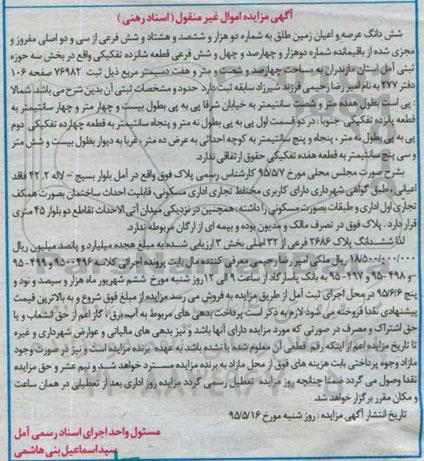 آگهی مزایده اموال غیر منقول ( اسناد رهنی )
شش دانگ عرصه و اعیان زمین طلق به شماره دو هزار و ششصد و هشتاد و شش فرعی از سی و دو اصلی مفروز و
مجزی شده از باقیمانده شماره دوهزار و چهارصد و چهل و شش فرعی قطعه شانزده تفکیکی واقع در بخش سه حوزه
ثبتی آمل استان مازندران به مساحت چهارصد و شصت و متر و هفت دسیمتر مربع ذیل ثبت ۷۶۹۸۲ صفحه ۱۰۶
دفتر ۴۷۷ به نام امیر رضا رحیمی فرزند شیرزاد سابقه ثبت دارد حدود و مشخصات ثبتی آن بدین شرح می باشد. شمالا
: پی است بطول هفده متر و شصت سانتیمتر به خیابان شرقا پی به پی بطول بیست و چهار متر و چهار سانتیمتر به
قطعه پانزده تفکیکی جنوبا : در دو قسمت اول پی به پی بطول نه متر و پنجاه سانتیمتر به قطعه چهارده تفکیکی دوم
پی به پی بطول نه متر ، پنجاه و پنج سانتیمتر به کوچه احداثی به عرض ده متر ، غربا به دیوار بطول بیست و شش متر
و سی پنج سانتیمتر به قطعه هفده تفکیکی حقوق ارتفاقی ندارد
بشرح صورت مجلس محلی مورخ ۹۵/۵/۷ کارشناس رسمی پلاک فوق واقع در آمل بلوار بسیج - لاله ۴۲.۲ فاقد
اعیانی ، طبق گواهی شهرداری دارای کاربری مختلط تجاری اداری مسکونی، قابلیت احداث ساختمان بصورت همکف
تجاری اول اداری و طبقات بصورت مسکونی را داشته؛ همچنین در نزدیکی میدان آتی الاحداث تقاطع دو بلوار ۴۵ متری
قرار دارد . پلاک فوق در تصرف مالک و مدیون بوده و بیمه ای از ارگان مربوطه ندارد.
لذا ششدانگ پلاک ۲۶۸۶ فرعی از ۳۲ اصلی بخش ۳ ارزیابی شده به مبلغ هجده میلیارد و پانصد میلیون ریال
۱۸/۵۰۰/۰۰۰/۰۰۰ ریال ملکی امیر رضا رحیمی معرفی کننده ملی بابت پرونده اجرای کلاسه ۹۵۰۰۴۹۶ و ۹۵۰۰۴۹۹
-و ۹۵۰۰۴۹۸ و ۹۵۰۰۴۹۷ به بانک پاسارگاد از ساعت ۹ الی ۱۲ روز شنبه مورخ ششم شهریور ماه هزار و سیصد و نود و
پنج ۹۵/۶/۶ در محل اجرای ثبت آمل از طریق مزایده به فروش می رسد مزایده از مبلغ فوق شروع و به بالاترین قیمت
پیشنهادی نقدا فروخته می شود لازم به ذکر است پرداخت بدهی های مربوط به آب، برق، گاز اعم از حق انشعاب و یا
حق اشتراک و مصرف در صورتی که مورد مزایده دارای آنها باشد و نیز بدهی های مالیاتی و عوارض شهرداری و غیره
تا تاریخ مزایده اعم از اینکه رقم قطعی آن معلوم شده یا نشده باشد به عهده برنده مزایده است و نیز در صورت وجود
مازاد وجوه پرداختی بابت هزینه های فوق از محل مازاد به برنده مزایده مسترد خواهد شد و نیم عشر و حق مزایده
نقدا وصول می گردد ضمنا چنانچه روز مزایده تعطیل رسمی گردد مزایده روز اداری بعد از تعطیلی در همان ساعت
و مکان مقرر برگزار خواهد شد.
تاریخ انتشار آگهی مزایده : روز شنبه مورخ ۹۵/۵/۱۶
مسئول واحد اجرای اسناد رسمی آمل
سید اسماعیل بنی هاشمی